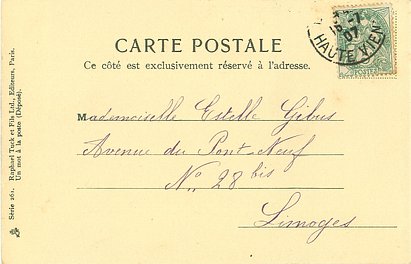 CARTE POSTALE
Ce côté est exclusivement réservé à l'adresse.
07
HAUTE VIEN
Mademoiselle Estelle Gibus
Avenue du Pont-Neuf
No 28 bis
Limoges
Série 261. Raphael Tuck et Fils Ltd., Editeurs, Paris.
Un mot à la poste (Déposé).